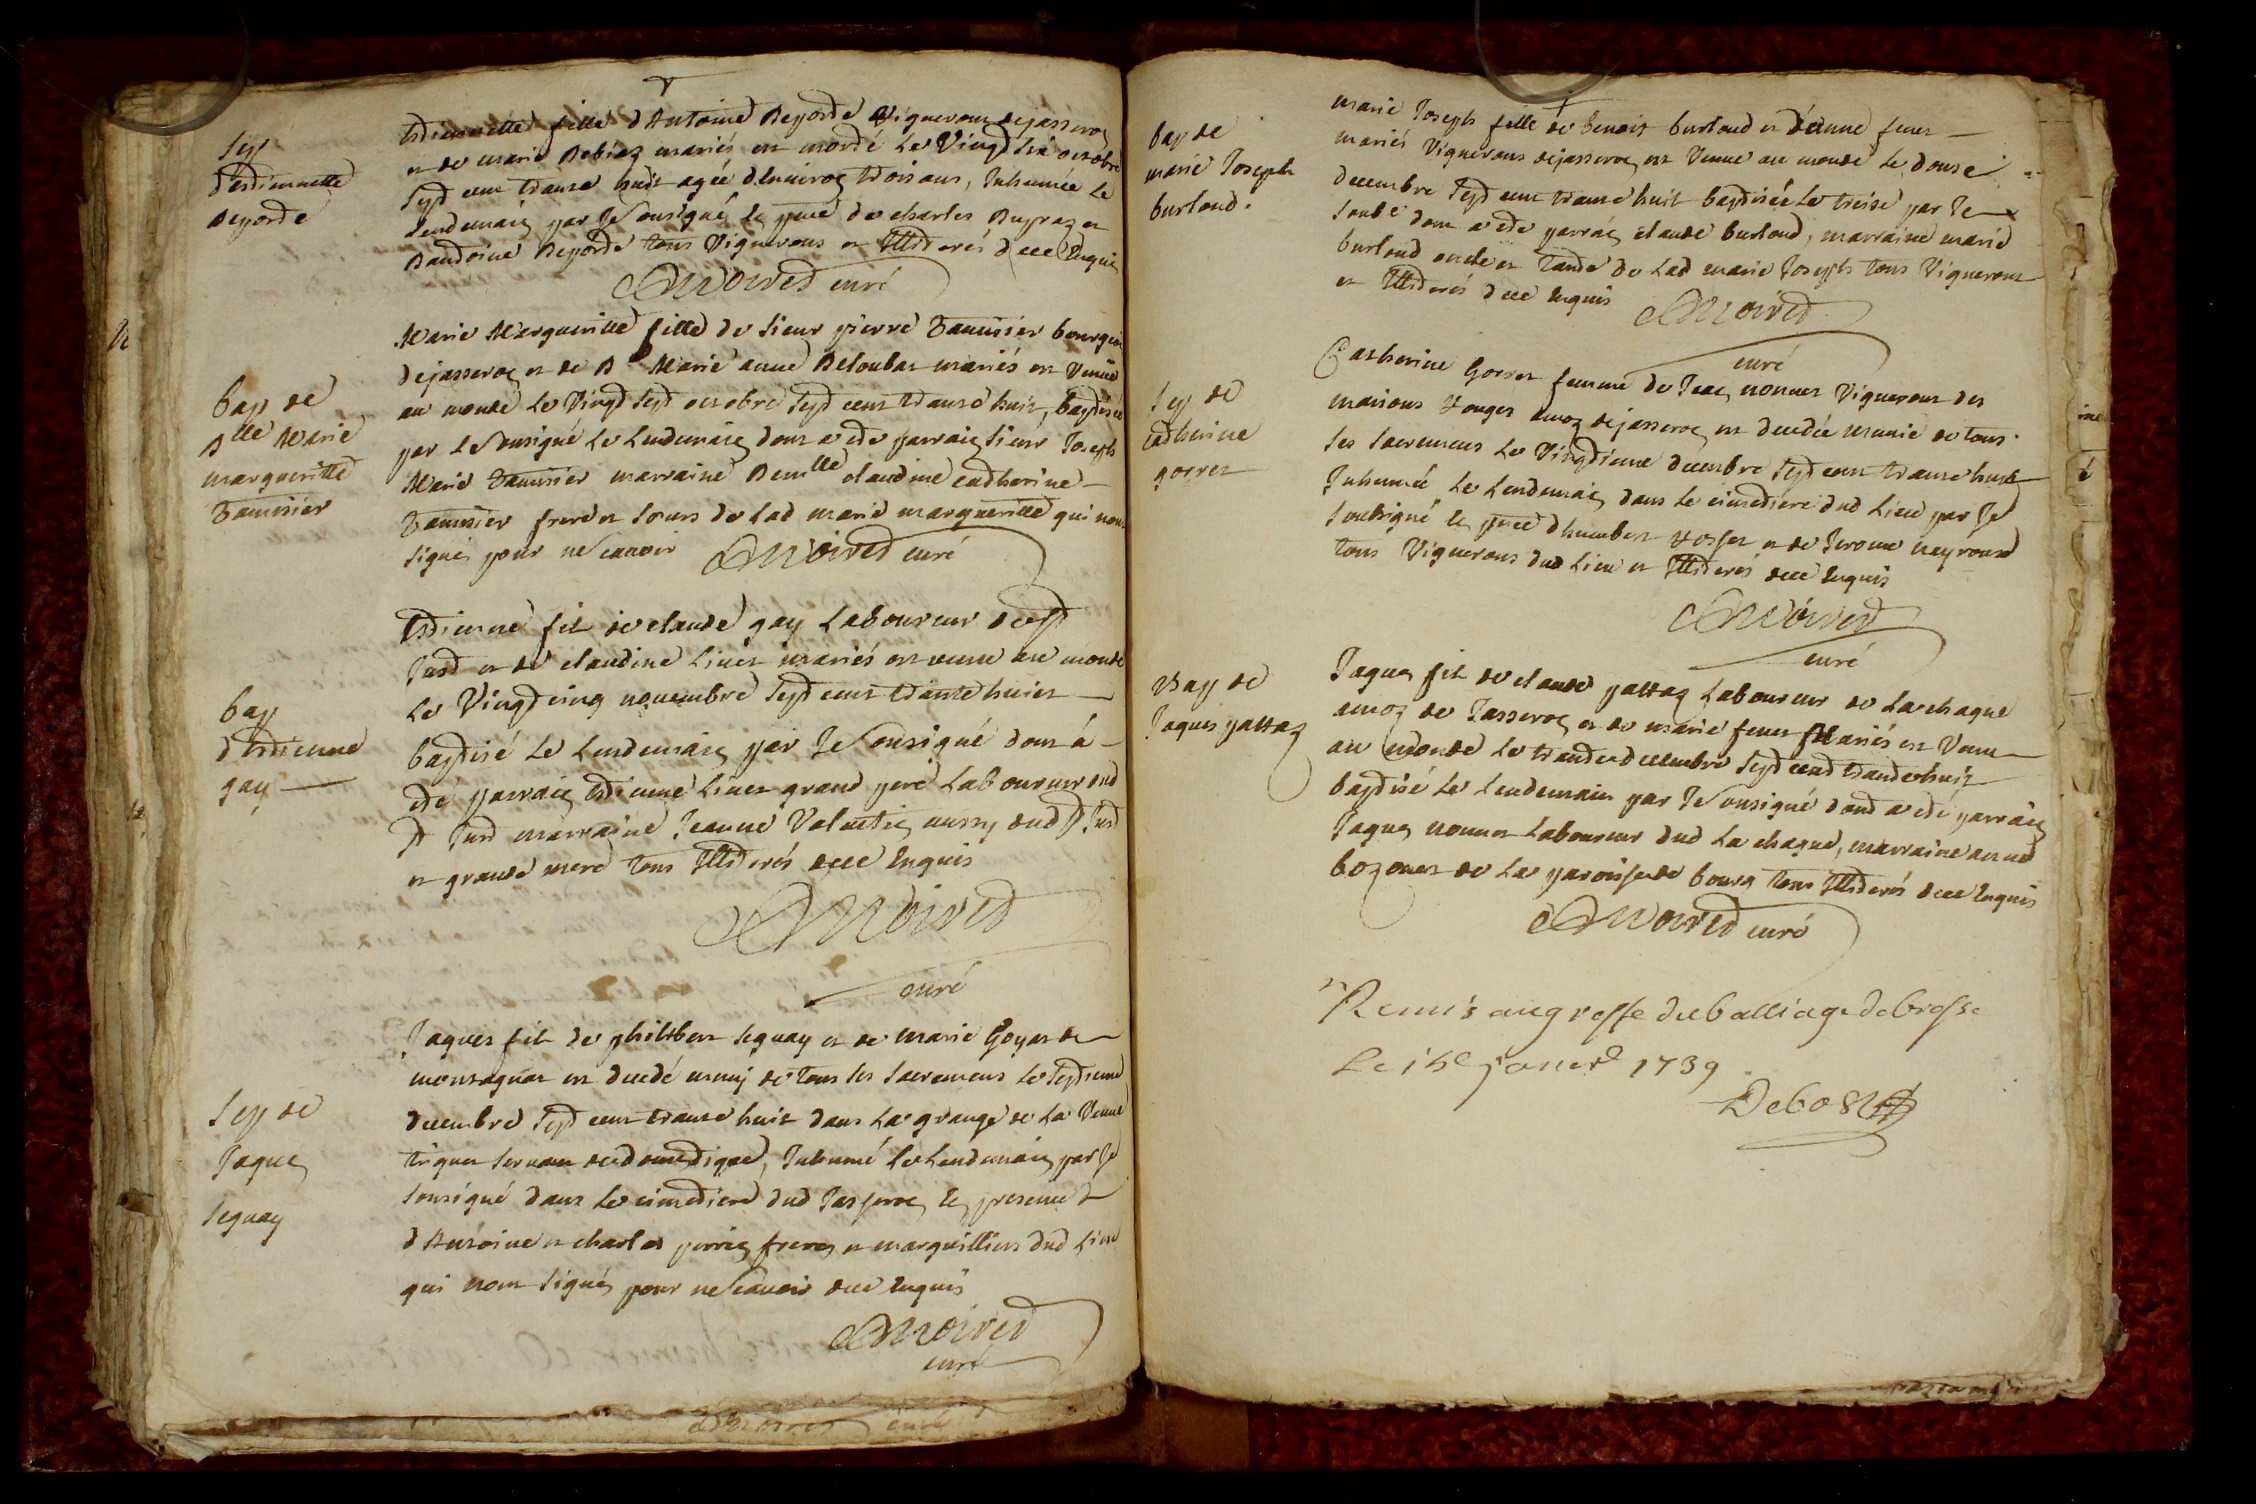 Sep
d'estiennette
Deporte
estiennette fille d'Antoine Deporte Vigneron dejasseron
et de marie Debiaz mariés est morte Le Vingt six octobre
Sept cent trante huit agée d'environ trois ans, Inhumée Le
Lendemain par Je Sousigné En pnce de charles Dupraz et
Dantoine Deporte tous Vignerons et Illiterés d ece Enquis
Moiret curé
bap de
Dlle Marie
margueritte
Marie Margueritte fille de Sieur pierre bourgeois
dejasseron et de D Marie anne Deloubat mariés est Venue
au monde Le Vingt Sept octobre Sept cent trante huit, baptisée
par Le Sousigné Le Lendemain dont a ete parrain Sieur Joseph
Marie marraine Demlle claudine catherine
frere et Soeurs de Lad marie margueritte qui nont
Signés pour ne Scavoir Moiret curé
bap
d'estienne
gay
Estienne fils de claude gay Laboureur de St
Just et de claudine Livet mariés est venu au monde
Le Vingt cinq novembre Sept cent trante huict
baptisé Le Lendemain par Je Sousigné dont a
eté parrain Estienne Livet grand pere Laboureur dud
St Just marraine Jeanne Valentin aussy dud St Just
et grande mere tous Illiterés dece Enquis
Moiret
curé
Sep de
Jaque
Seguay
Jaques fils de philibert Seguay et de marie Goyat de
montaguat est decedé muny de tous les Sacremens Le Septieme
decembre Sept cent trante huit dans La grange de La Veuve
triquet Servant de domestique, Inhumé Le Lendemain par Je
Sousigné dans Le cimetiere dud Jasseron En presence
d'Antoine et charles perrin freres et marguilliers dud Lieu
qui nont Signés pour ne Scavoir dece Enquis
Moiret
curé
bap de
marie Joseph
burloud.
marie Joseph fille de benoit burloud et d'anne fenet
mariés Vignerons dejasseron est Venue au monde Le douse
decembre Sept cent trante huit baptisée Le treise par Je
Soubé dont a ete parrain claude burloud, marraine marie
burloud oncle et tante de Lad marie Joseph tous Vignerons
et Illiterés dece Enquis Moiret
curé
Sep de
Catherine
gorret
Catherine Gorret femme de Jean nonnet Vigneron des
maisons rouges amoz dejasseron est decedée munie de tous
Les Sacremens Le Vingtieme decembre Sept cent trante huit
Inhumée Le Lendemain dans Le cimetiere dud Lieu par Je
Soubsigné En pnce d'humbert et de Jerome neyroud
tous Vignerons dud Lieu et Illiterés dece Enquis
Moiret
curé
Bap de
Jaques pattaz
Jaques fils de claude pattaz Laboureur de Lachaque
amoz de Jasseron et de marie fenet Mariés est Venu
au monde Le trante decembre Sept cent trante huit
baptisé Le Lendemain par Je Sousigné dont a eté parrain
Jaques nonnet Laboureur dud La chaque, marraine anne
bozonet de La paroisse de bourg tous Illiterés dece Enquis
Moiret curé
Remis augreffe dubailliage de bresse
Le janver 1739
Debost